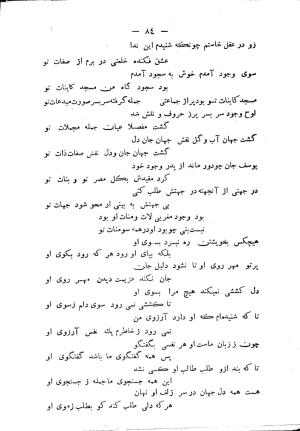 — ٨٤ —
زو در عقل خاستم چونکه شنیدم این ندا
عشق فکنده خلعتی در برم از صفات تو
سوی وجود آمدم خوش به سجود آمدم
بود سجود گاه من مسجد کاینات تو
مسجد کاینات تو بود پر از جماعتی جمله گرفته سر بسر صورت مبدعات تو
لوح وجود سر بسر پرز حروف و نقش شد
گشت مفصلا عیان جمله مجملات تو
گشت جهان آب و گل نقش جهان جان دل
گشت جهان جان و دل نقش صفات ذات تو
یوسف جان چو دور ماند از پدر وجود خود
کرد مقیدش بکل مصر تو و بنات تو
در جهتی از آنجهته در جهتش طلب کنی
بی جهتش به بینی ار محو شود جهات تو
بود وجود مغربی لات و منات او بود
نیست بتی چو بود او در همه سومنات تو
هیچکس بخویشتن ره نبرد بسوی او
بلکه بپای او رود هر که رود بکوی او
پرتو مهر روی او تا نشود دلیل جان
جان نکند عزیمت دیدن مهر روی او
دل کششی نمیکند هیچ مرا بسوی او
تا کششی نمی رسد سوی دلم ز سوی او
تا که شنیده‌ام که او دارد آرزوی من
می نرود ز خاطرم یک نفس آرزوی او
چون ز زبان ماست او هر نفسی بگفتگو
پس همه گفتگوی ما باشد گفتگوی او
تا که بند ازو طلب طالب او کسی نشد
این همه جستجوی ما جمله ز جستجوی او
هست همه دل جهان در سر زلف او نهان
هر که دلی طلب کند گو بطلب ز موی او